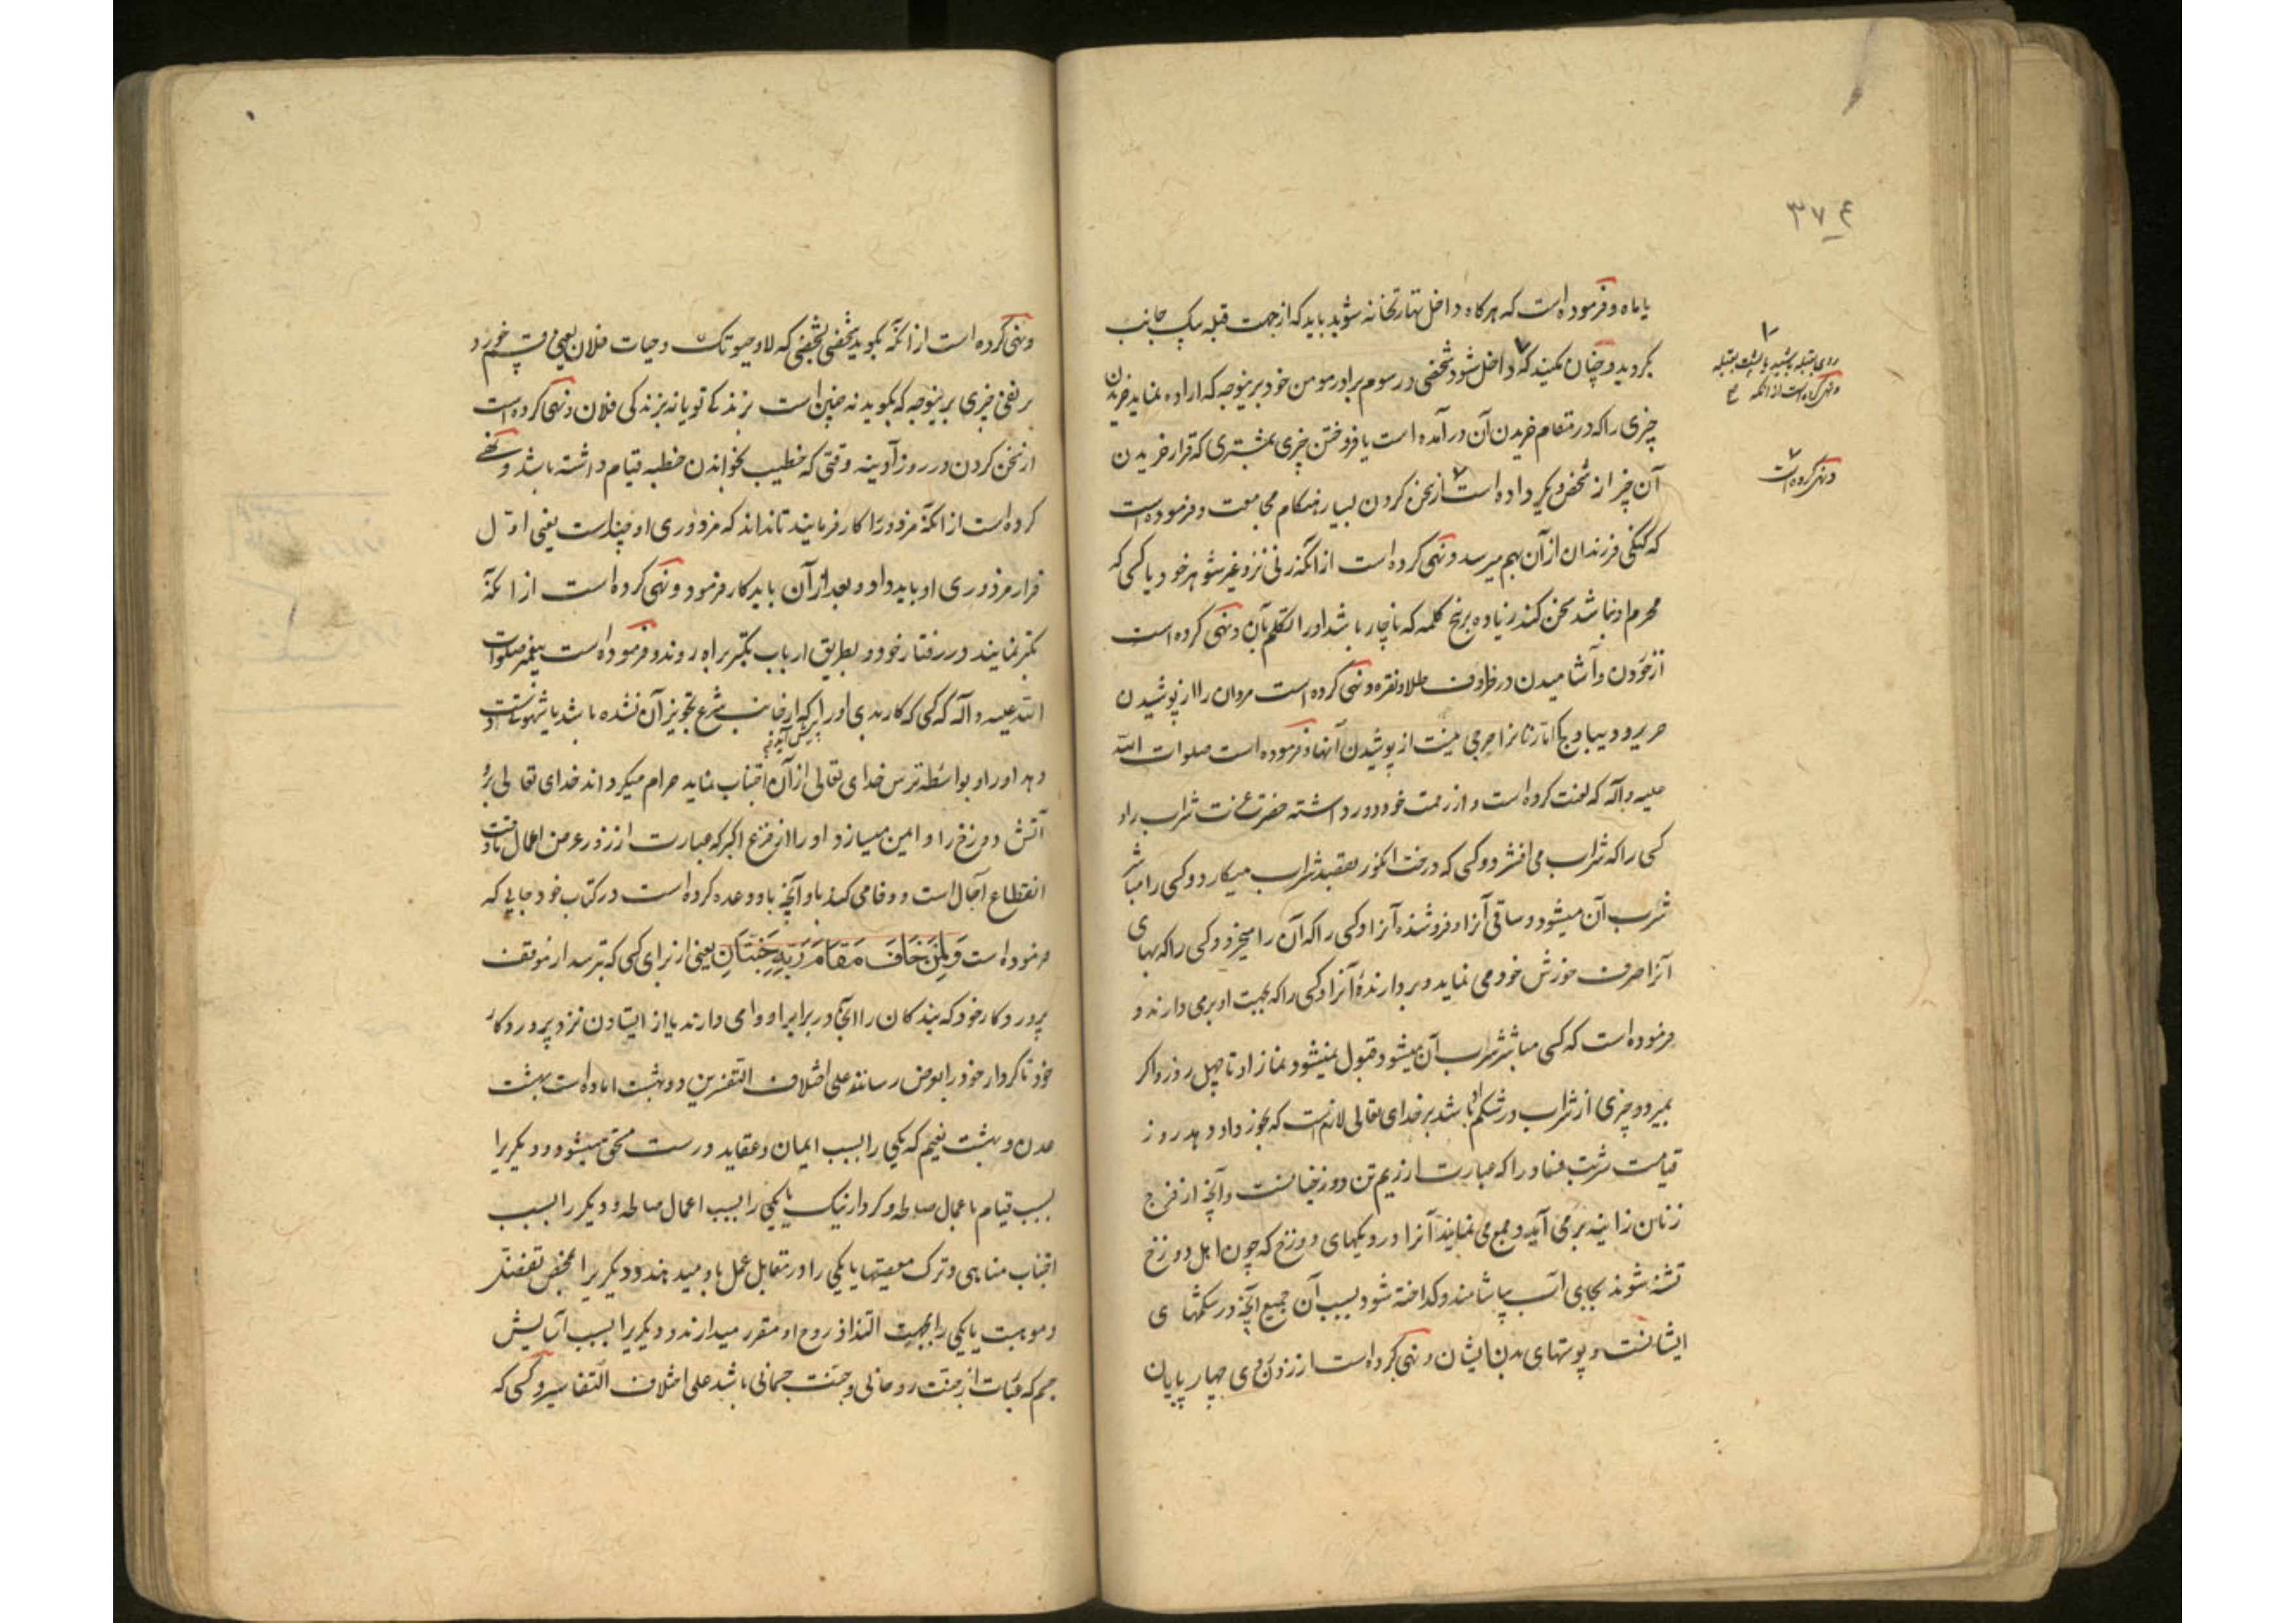 ۳۷۴
یا ماه و فرموده است که هرکاه داخل طهارتخانه شوید باید که از جهت قبله بیک جانب
بکردید و چنان مکنید که داخل شود شخصی در سوم برادر مومن خود بر ینوجه که اراده نماید خریدن
چیزی را که در مقام خریدن آن در آمده است یا فروختن چیزی بمشتری که قرار خریدن
آن چیز از شخص دیکر داده است از سخن کردن بسیار هنکام مجامعت و فرموده است
که کنکی فرزندان از آن بهم میرسد و نهی کرده است از انکه زنی نزد غیر شوهر خود یا کسی که
محرم او نباشد سخن کند زیاده بر پنج کلمه که ناچار باشد او را تکلم بآن و نهی کرده است
از خوردن و آشامیدن در ظروف طلا و نقره و نهی کرده است مردان را از پوشیدن
حریر و دیبا و اما زنانرا حرجی نیست از پوشیدن آنها و فرموده است صلوات الله
علیه و آله که لعنت کرده است و از رحمت خود دور داشته حضرت عزت شراب را و
کسی را که شراب می افشرد و کسی که درخت انکور بقصد شراب میکارد و کسی را مباشر
شرب آن میشود و ساقی آنرا و فروشنده آنرا و کسی را که آن را میخرد و کسی را که بهای
آنرا صرف خورش خود می نماید و بردارندهٔ آنرا و کسی را که بجهت او برمی دارند و
فرموده است که کسی مباشر شراب آن میشود قبول نمیشود نماز او تا چهل روز و اکر
بمیرد و چیزی از شراب در شکم او باشد بر خدای تعالی لازمست که بخورد او دهد روز
قیامت شربت فساد را که عبارت از ریم تن دوزخیانست و آنچه از فرج
زنان زانیه برمی آید و جمع می نمایند آنرا در دیکهای دوزخ که چون اهل دوزخ
تشنه شوند بجای آب بیاشامند و کداخته شود بسبب آن جمیع آنچه در شکمهای
ایشانست و پوستهای بدن ایشان و نهی کرده است از زدن روی چهار پایان
روی بقبله باشید یا پشت بقبله
و نهی کرده است از انکه
و نهی کرده است
و نهی کرده است از انکه بکوید شخصی بشخصی که لا و حیوتک و حیات فلان یعنی قسم خورد
بر نفی چیزی بر ینوجه که بکوید نه چنین است بزندکی تو یا نه بزندکی فلان و نهی کرده است
از سخن کردن در روز آدینه وقتی که خطیب بخواندن خطبه قیام داشته باشد و نهی
کرده است از انکه مزدور را کار فرمایند تا نداند که مزدوری او چند است یعنی اول
قرار مزدوری او باید داد و بعد از آن باید کار فرمود و نهی کرده است از انکه
تکبر نمایند در رفتار خود و بطریق ارباب تکبر براه روند و فرموده است پیغمبر صلوات
الله علیه و آله که کسی که کار بدی او را که از جانب شرع تجویز آن نشده باشد یا شهوت دست
پیش آید و
دهد او را و بواسطه ترس خدای تعالی از آن اجتناب نماید حرام میکرداند خدای تعالی برو
آتش دوزخ را و امین میسازد او را از فزع اکبر که عبارت از روز عرض اعمال
انقطاع آجال است و وفا می کند باو آنچه باو وعده کرده است در کتاب خود جایی که
فرموده است وَلِمَنْ خَافَ مَقَامَ رَبِّهِ جَنَّتَانِ یعنی از برای کسی که بترسد از موقف
پرورد کار خود که بندکان را آنجا در برابر او وا می دارند یا از ایستادن نزد پروردکار
خود تا کردار خود را بعرض رسانند علی اختلاف التفسرین دو بهشت اماده است بهشت
عدن و بهشت نعیم که یکی را بسبب ایمان و عقاید درست مستحق میشود و دیکریرا
بسبب قیام باعمال صالحه و کردار نیک یا یکی را بسبب اعمال صالحه و دیکر را بسبب
اجتناب مناهی و ترک معصیتها یا یکی را در مقابل عمل باو میدهند و دیکریرا بمحض تفضل
و موهبت یا یکی را بجهت التذاذ روح او مقرر میدارند و دیکریرا بسبب آسایش
جسم که عبارت از جنت روحانی و جنت جسمانی باشد علی اختلاف التفاسیر و کسی که